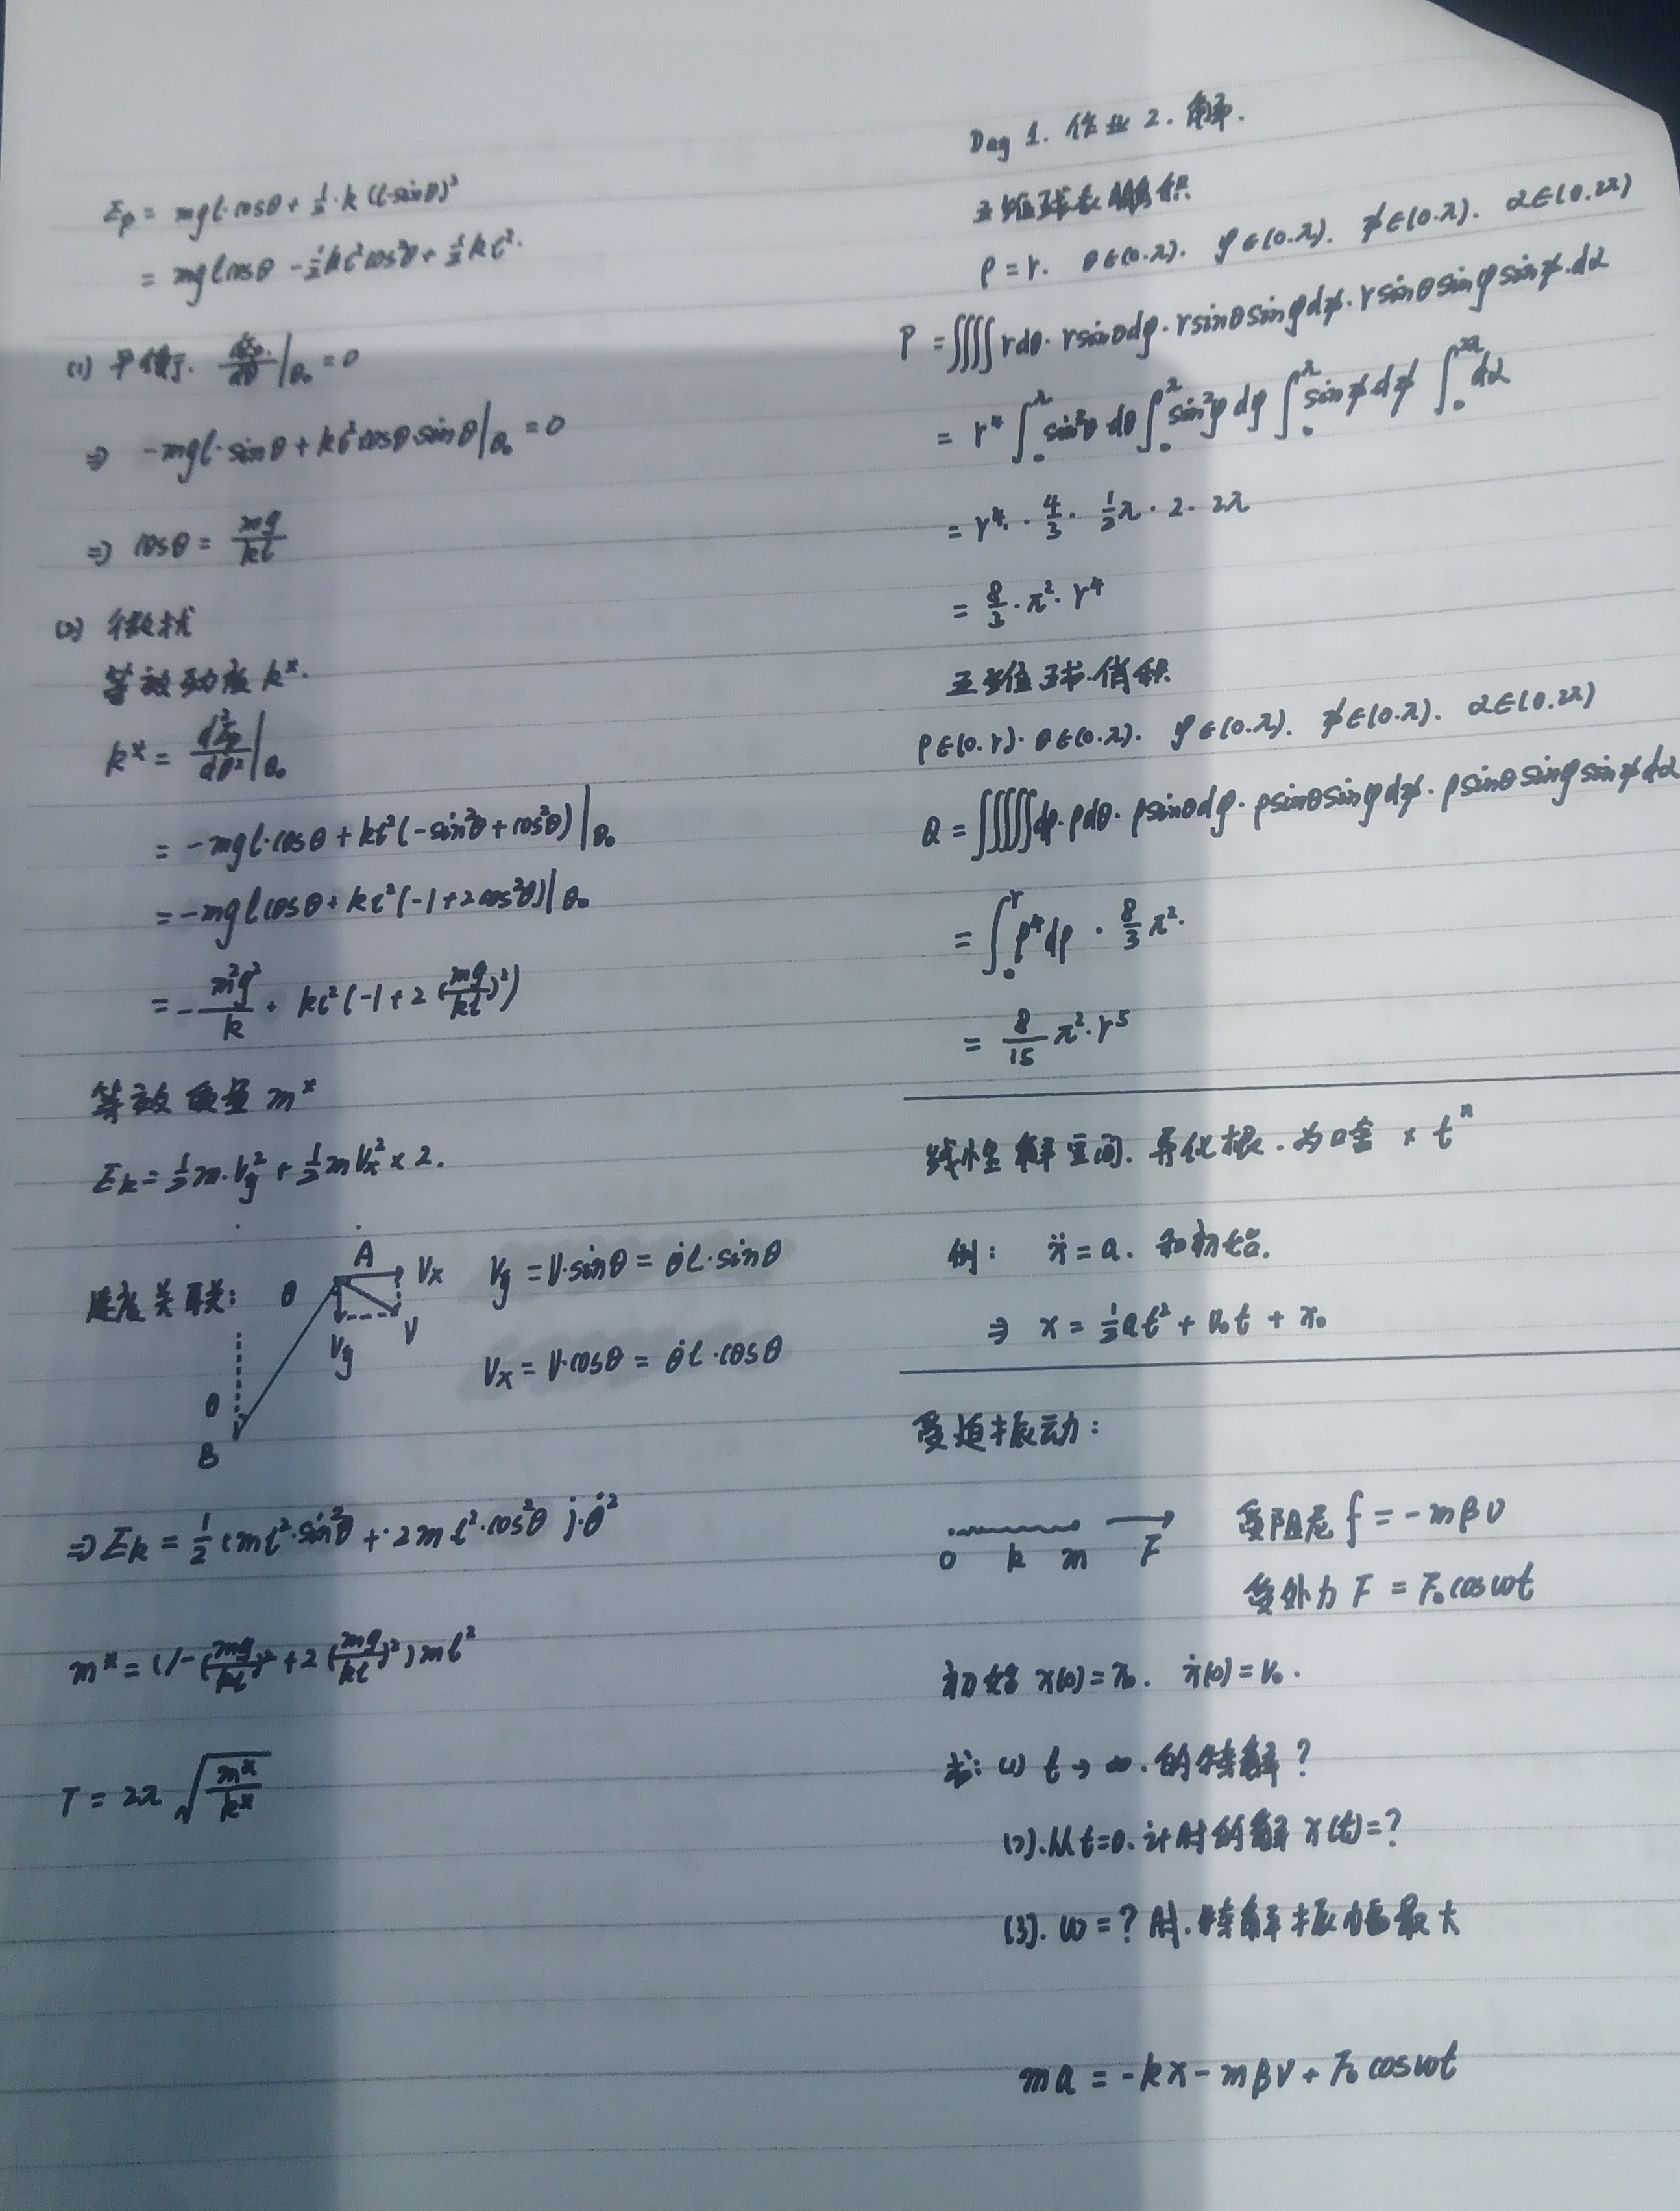 Ep = mgl·cosθ + ½·k(l·sinθ)²
= mglcosθ - ½kl²cos²θ + ½kl².
(1) 平衡. dEp/dθ |θ₀ = 0
⇒ -mgl·sinθ + kl²cosθ·sinθ |θ₀ = 0
⇒ cosθ = mg/kl
(2) 微扰
等效劲度 k*.
k* = d²Ep/dθ² |θ₀
= -mgl·cosθ + kl²(-sin²θ + cos²θ) |θ₀
= -mglcosθ + kl²(-1+2cos²θ) |θ₀
= -m²g²/k + kl²(-1+2(mg/kl)²)
等效质量 m*
Ek = ½m·Vy² + ½mVx² × 2.
速度关联:
θ
A
Vx
Vy
V
θ
B
Vy = V·sinθ = θ̇l·sinθ
Vx = V·cosθ = θ̇l·cosθ
⇒ Ek = ½(ml²·sin²θ + 2ml²·cos²θ)·θ̇²
m* = (1-(mg/kl)²+2(mg/kl)²)ml²
T = 2π√(m*/k*)
Day 1. 作业 2. 解.
五维球表面积
ρ = r. θ∈(0.π). φ∈(0.π). ψ∈(0.π). α∈(0.2π)
P = ∫∫∫∫ rdθ· rsinθdφ· rsinθsinφdψ· rsinθsinφsinψ·dα
= r⁴ ∫₀^π sin³θ dθ ∫₀^π sin²φ dφ ∫₀^π sinψ dψ ∫₀^2π dα
= r⁴· 4/3· ½π· 2· 2π
= 8/3·π²·r⁴
五维球体积
ρ∈(0.r)· θ∈(0.π). φ∈(0.π). ψ∈(0.π). α∈(0.2π)
Q = ∫∫∫∫∫dρ·ρdθ· ρsinθdφ· ρsinθsinφdψ· ρsinθsinφsinψdα
= ∫₀^r ρ⁴dρ · 8/3 π².
= 8/15 π²·r⁵
线性解空间. 异化根. 为啥 × tⁿ
例: ẍ = a. 和初始.
⇒ x = ½at² + v₀t + x₀
受迫振动:
0 k m F
受阻尼 f = -mβv
受外力 F = F₀cosωt
初始 x(0)=x₀. ẋ(0)=v₀.
求: (1) t→∞.的特解?
(2).从t=0.计时的解 x(t)=?
(3). ω=? 时.特解振幅最大
ma = -kx - mβv + F₀cosωt